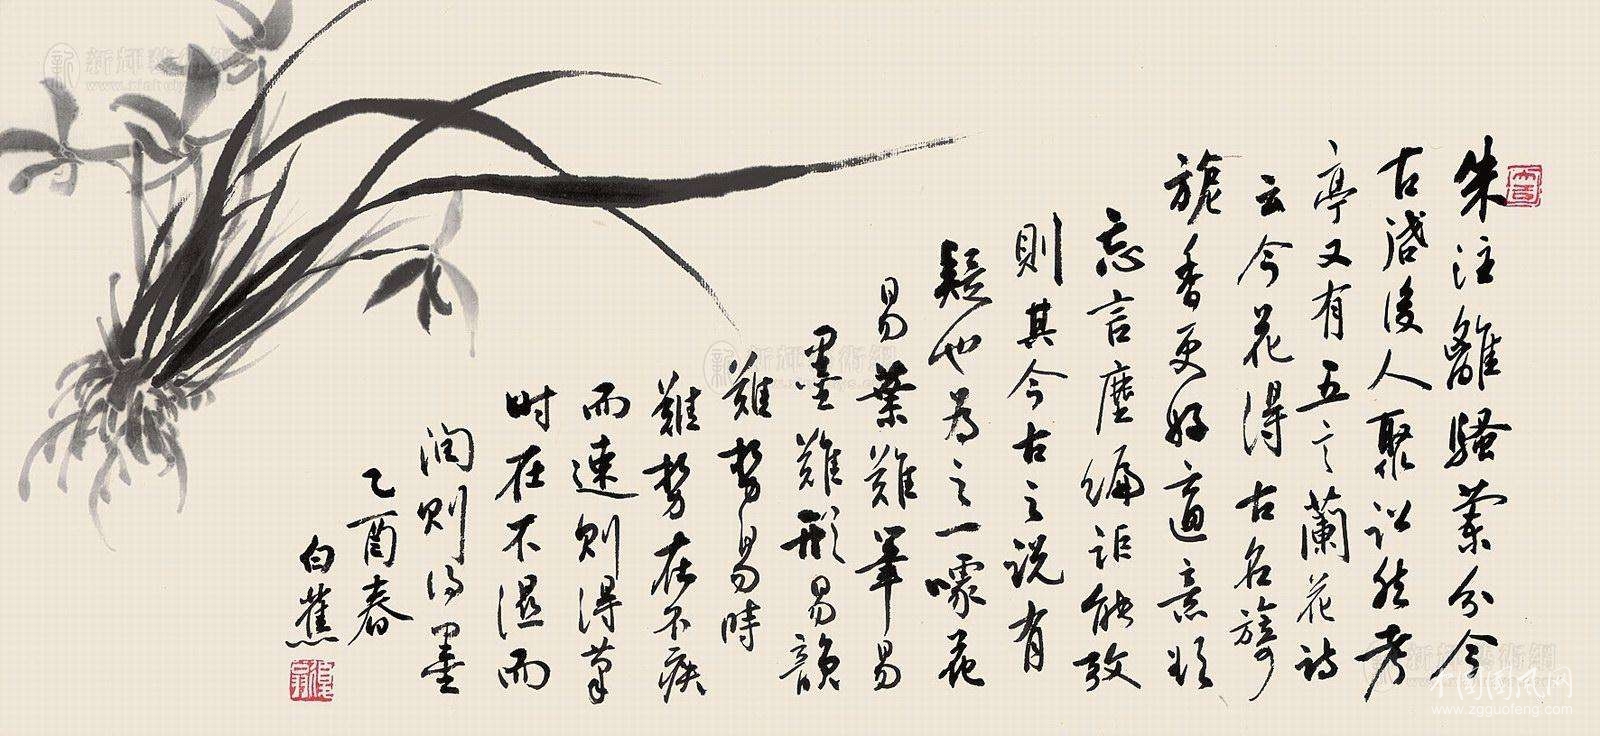 朱注離騷蘭分今
古後人聚訟然考
亭又有五言蘭花詩
云今花得古名旖
旎香更好適意欲
忘言塵編詎能攷
則其今古之說有
疑也為之一噱花
易葉難筆易
墨難形易韻
難勢易時
難勢在不疾
而速則得筆
時在不濕而
潤則得墨
乙酉春
白蕉
新輝藝術網
新輝藝術網
新輝藝術網
中国国风网
www.zgguofeng.com